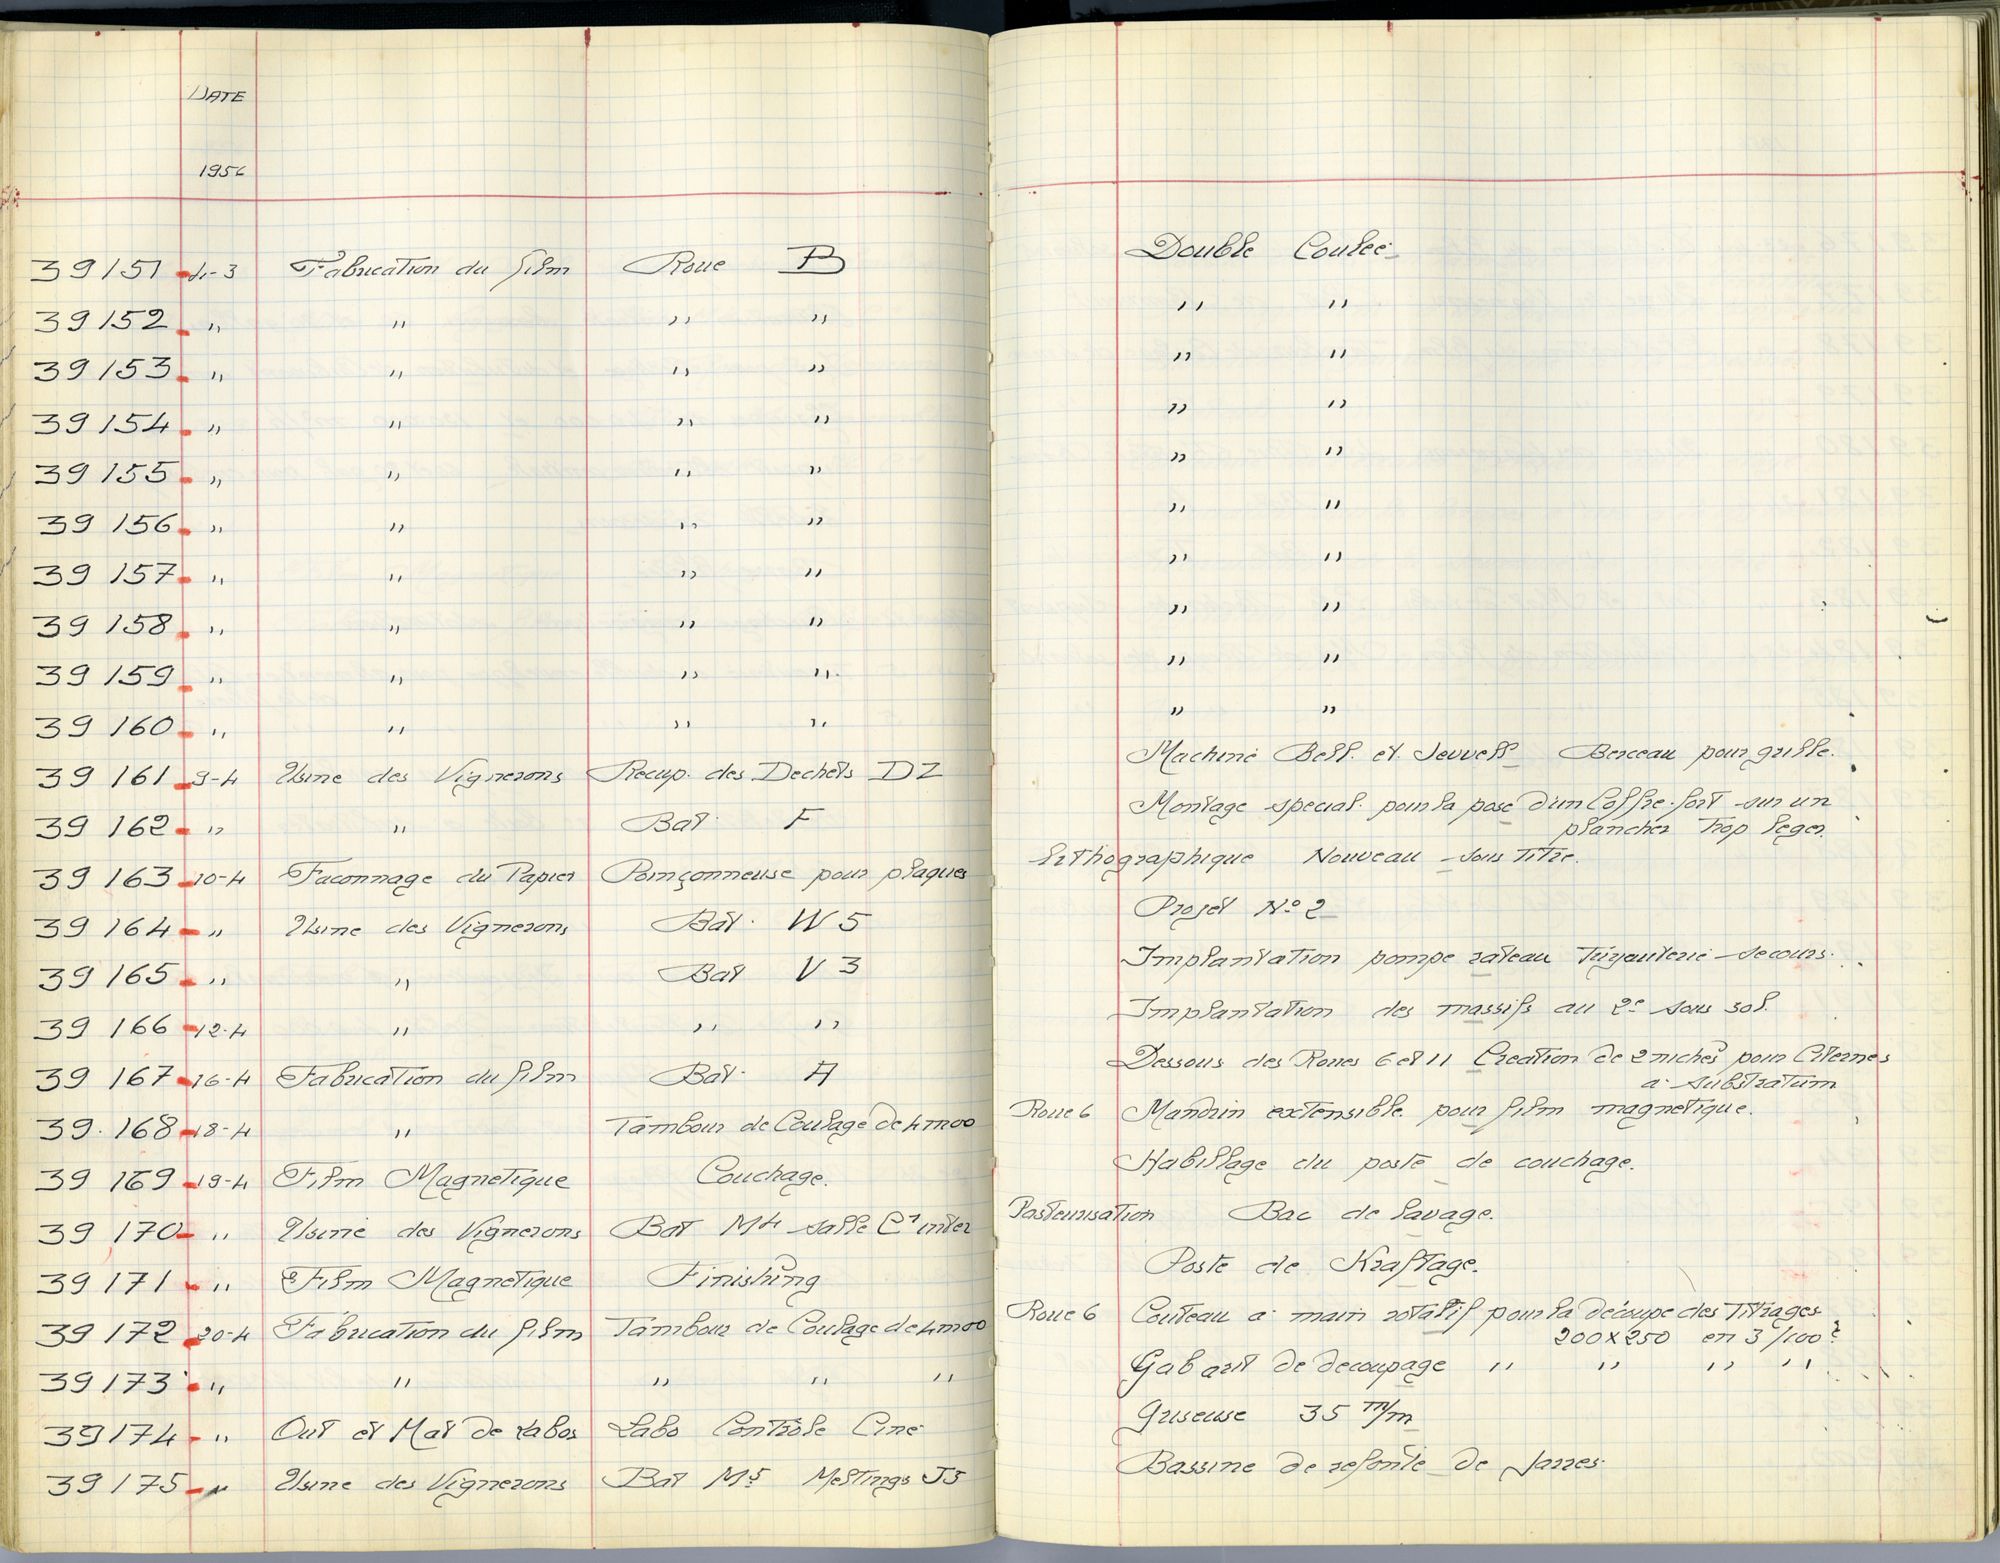 DATE
1956
39151 -3 Fabrication du film Roue B Double Coulée
39152 " " " " " "
39153 " " " " " "
39154 " " " " " "
39155 " " " " " "
39156 " " " " " "
39157 " " " " " "
39158 " " " " " "
39159 " " " " " "
39160 " " " " " "
39161 9-4 Usine des Vignerons Recup. des Dechets DZ Machine Bell. et. Berceau pour grille.
39162 " " Bat. F Montage special. pour la pose d'un Coffre-fort sur un
plancher Trop leger.
39163 10-4 Faconnage du Papier Poinçonneuse pour plaques lithographique Nouveau sous Titre.
39164 " Usine des Vignerons Bat. W5 Projet No 2
39165 " " Bat V3 Implantation pompe rateau secours.
39166 12-4 " " " Implantation des massifs au 2e sous sol.
39167 16-4 Fabrication du film Bat. A Dessous des Roues 6 et 11 Creation de 2 niches pour Citernes
a substratum
39.168 18-4 " Tambour de Coulage de 4m00 Roue 6 Mandrin extensible pour film magnetique.
39169 19-4 Film Magnetique Couchage. Habillage du poste de couchage.
39170 " Usine des Vignerons Bat M4 salle Pasteurisation Bac de lavage.
39171 " Film Magnetique Finishing Poste de Kraftage.
39172 20-4 Fabrication du film Tambour de Coulage de 4m00 Roue 6 Couteau a main rotatif pour la découpe des Titrages
200x250 en 3/100e
39173 " " " " " Gabarit de decoupage " " " "
39174 " Out et Mat de Labos Labo Controle Cine Griseuse 35 m/m
39175 " Usine des Vignerons Bat M5 Meltings J5 Bassine de refonte de Jarres.